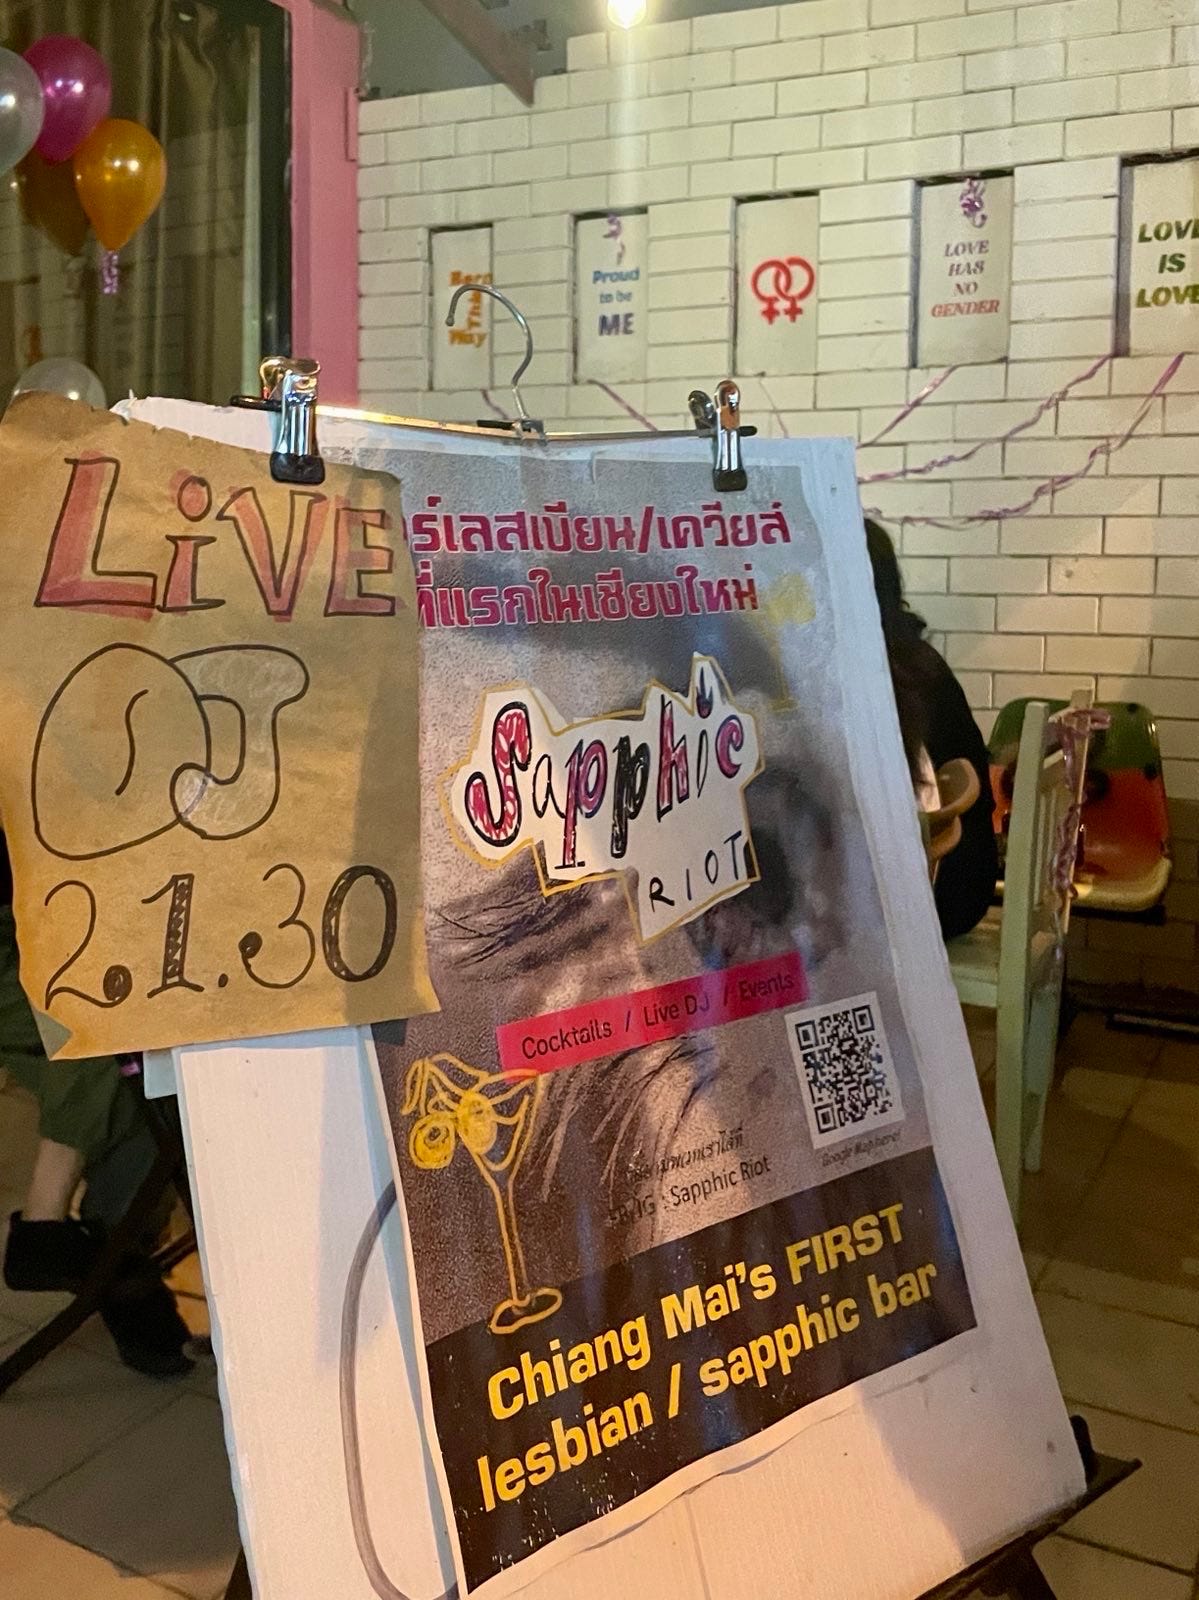 Born
This
Way
Proud
to be
ME
LOVE
HAS
NO
GENDER
LOVE
IS
LOVE
LiVE
DJ
21.30
ร์เลสเบียน/เควียส์
ที่แรกในเชียงใหม่
Sapphic
RIOT
Cocktails / Live DJ / Events
Google Map here!
FB/IG : Sapphic Riot
Chiang Mai's FIRST
lesbian / sapphic bar